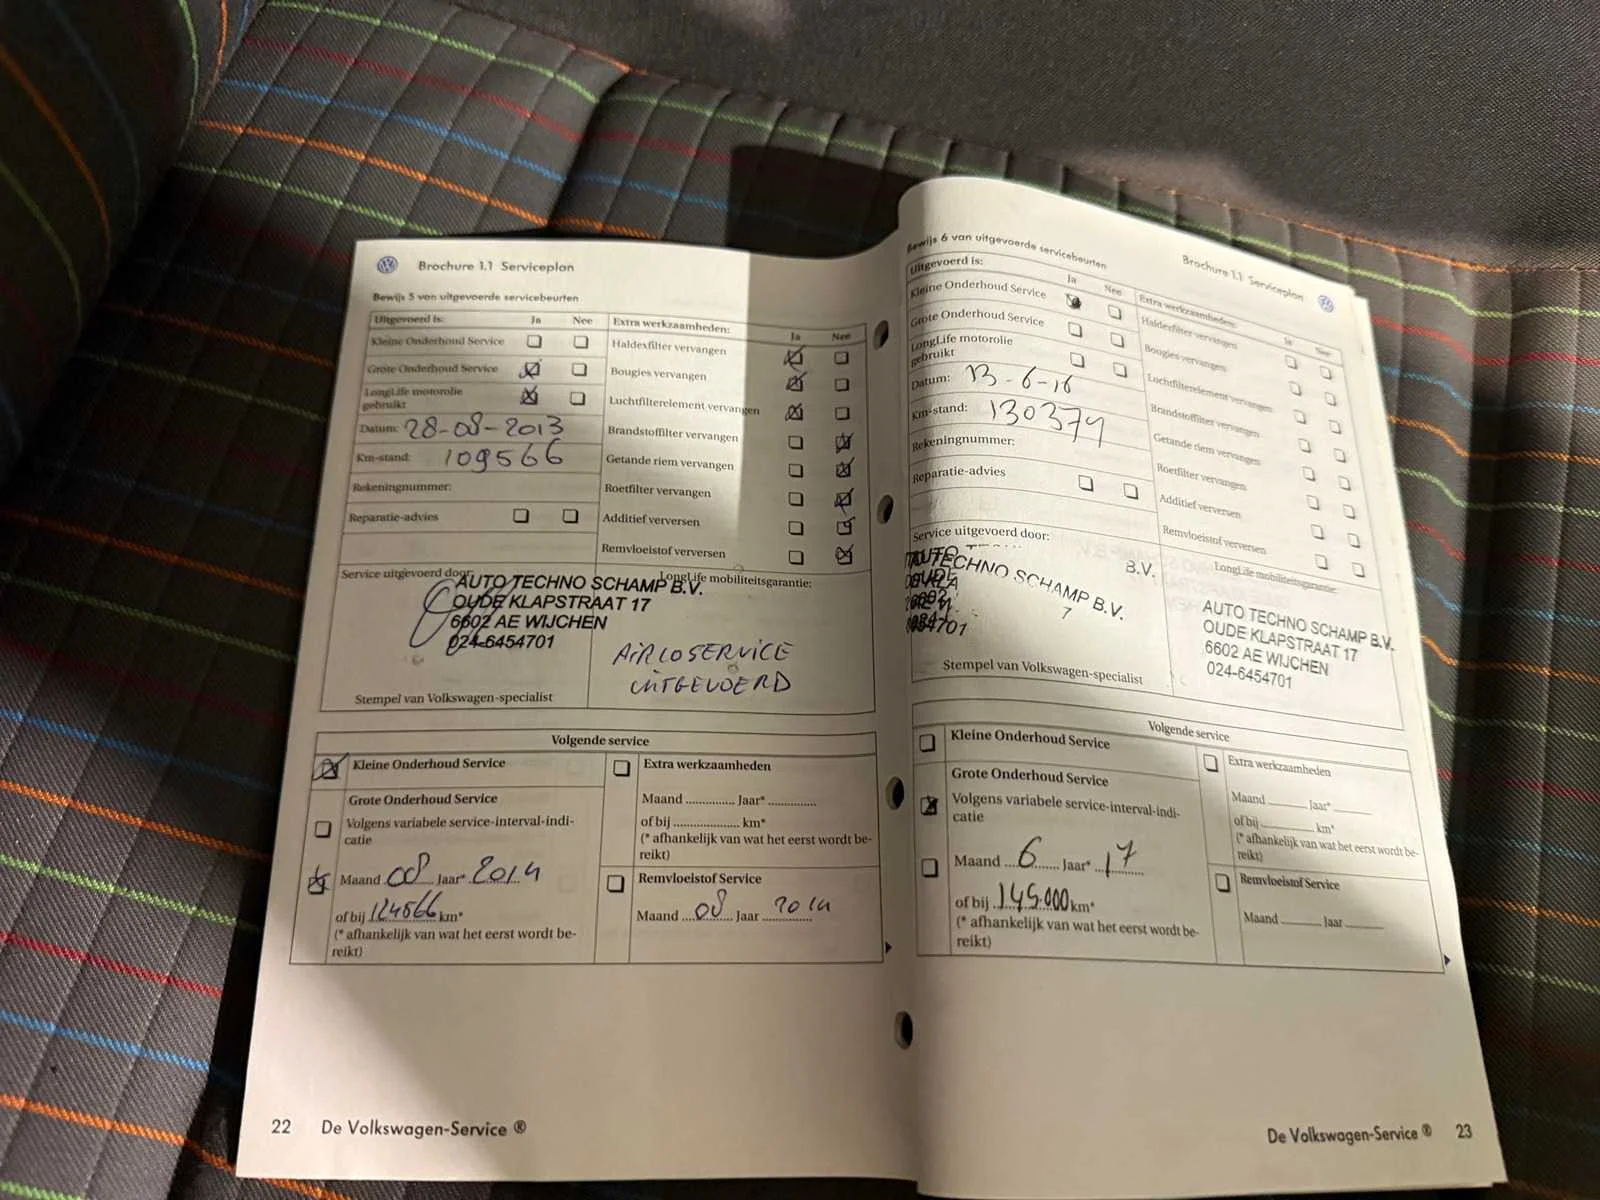 Brochure 1.1 Serviceplan
Bewijs 5 van uitgevoerde servicebeurten
Uitgevoerd is: Ja Nee
Kleine Onderhoud Service
Grote Onderhoud Service
LongLife motorolie
gebruikt
Datum: 28-08-2013
Km-stand: 109566
Rekeningnummer:
Reparatie-advies
Extra werkzaamheden: Ja Nee
Haldexfilter vervangen
Bougies vervangen
Luchtfilterelement vervangen
Brandstoffilter vervangen
Getande riem vervangen
Roetfilter vervangen
Additief verversen
Remvloeistof verversen
Service uitgevoerd door:
AUTO TECHNO SCHAMP B.V.
OUDE KLAPSTRAAT 17
6602 AE WIJCHEN
024-6454701
Stempel van Volkswagen-specialist
LongLife mobiliteitsgarantie:
AIRCOSERVICE
UITGEVOERD
Volgende service
Kleine Onderhoud Service
Grote Onderhoud Service
Volgens variabele service-interval-indi-
catie
Maand 08 Jaar* 2014
of bij 124566 km*
(* afhankelijk van wat het eerst wordt be-
reikt)
Extra werkzaamheden
Maand .............. Jaar* ..............
of bij .................... km*
(* afhankelijk van wat het eerst wordt be-
reikt)
Remvloeistof Service
Maand 08 Jaar 2014
22 De Volkswagen-Service ®
Brochure 1.1 Serviceplan
Bewijs 6 van uitgevoerde servicebeurten
Uitgevoerd is: Ja Nee
Kleine Onderhoud Service
Grote Onderhoud Service
LongLife motorolie
gebruikt
Datum: 13-6-16
Km-stand: 130379
Rekeningnummer:
Reparatie-advies
Extra werkzaamheden: Ja Nee
Haldexfilter vervangen
Bougies vervangen
Luchtfilterelement vervangen
Brandstoffilter vervangen
Getande riem vervangen
Roetfilter vervangen
Additief verversen
Remvloeistof verversen
Service uitgevoerd door:
AUTO TECHNO SCHAMP B.V.
B.V.
7
Stempel van Volkswagen-specialist
LongLife mobiliteitsgarantie:
AUTO TECHNO SCHAMP B.V.
OUDE KLAPSTRAAT 17
6602 AE WIJCHEN
024-6454701
Volgende service
Kleine Onderhoud Service
Grote Onderhoud Service
Volgens variabele service-interval-indi-
catie
Maand 6 Jaar* 17
of bij 145.000 km*
(* afhankelijk van wat het eerst wordt be-
reikt)
Extra werkzaamheden
Maand ........ Jaar* ........
of bij ........ km*
(* afhankelijk van wat het eerst wordt be-
reikt)
Remvloeistof Service
Maand ........ Jaar ........
De Volkswagen-Service ® 23